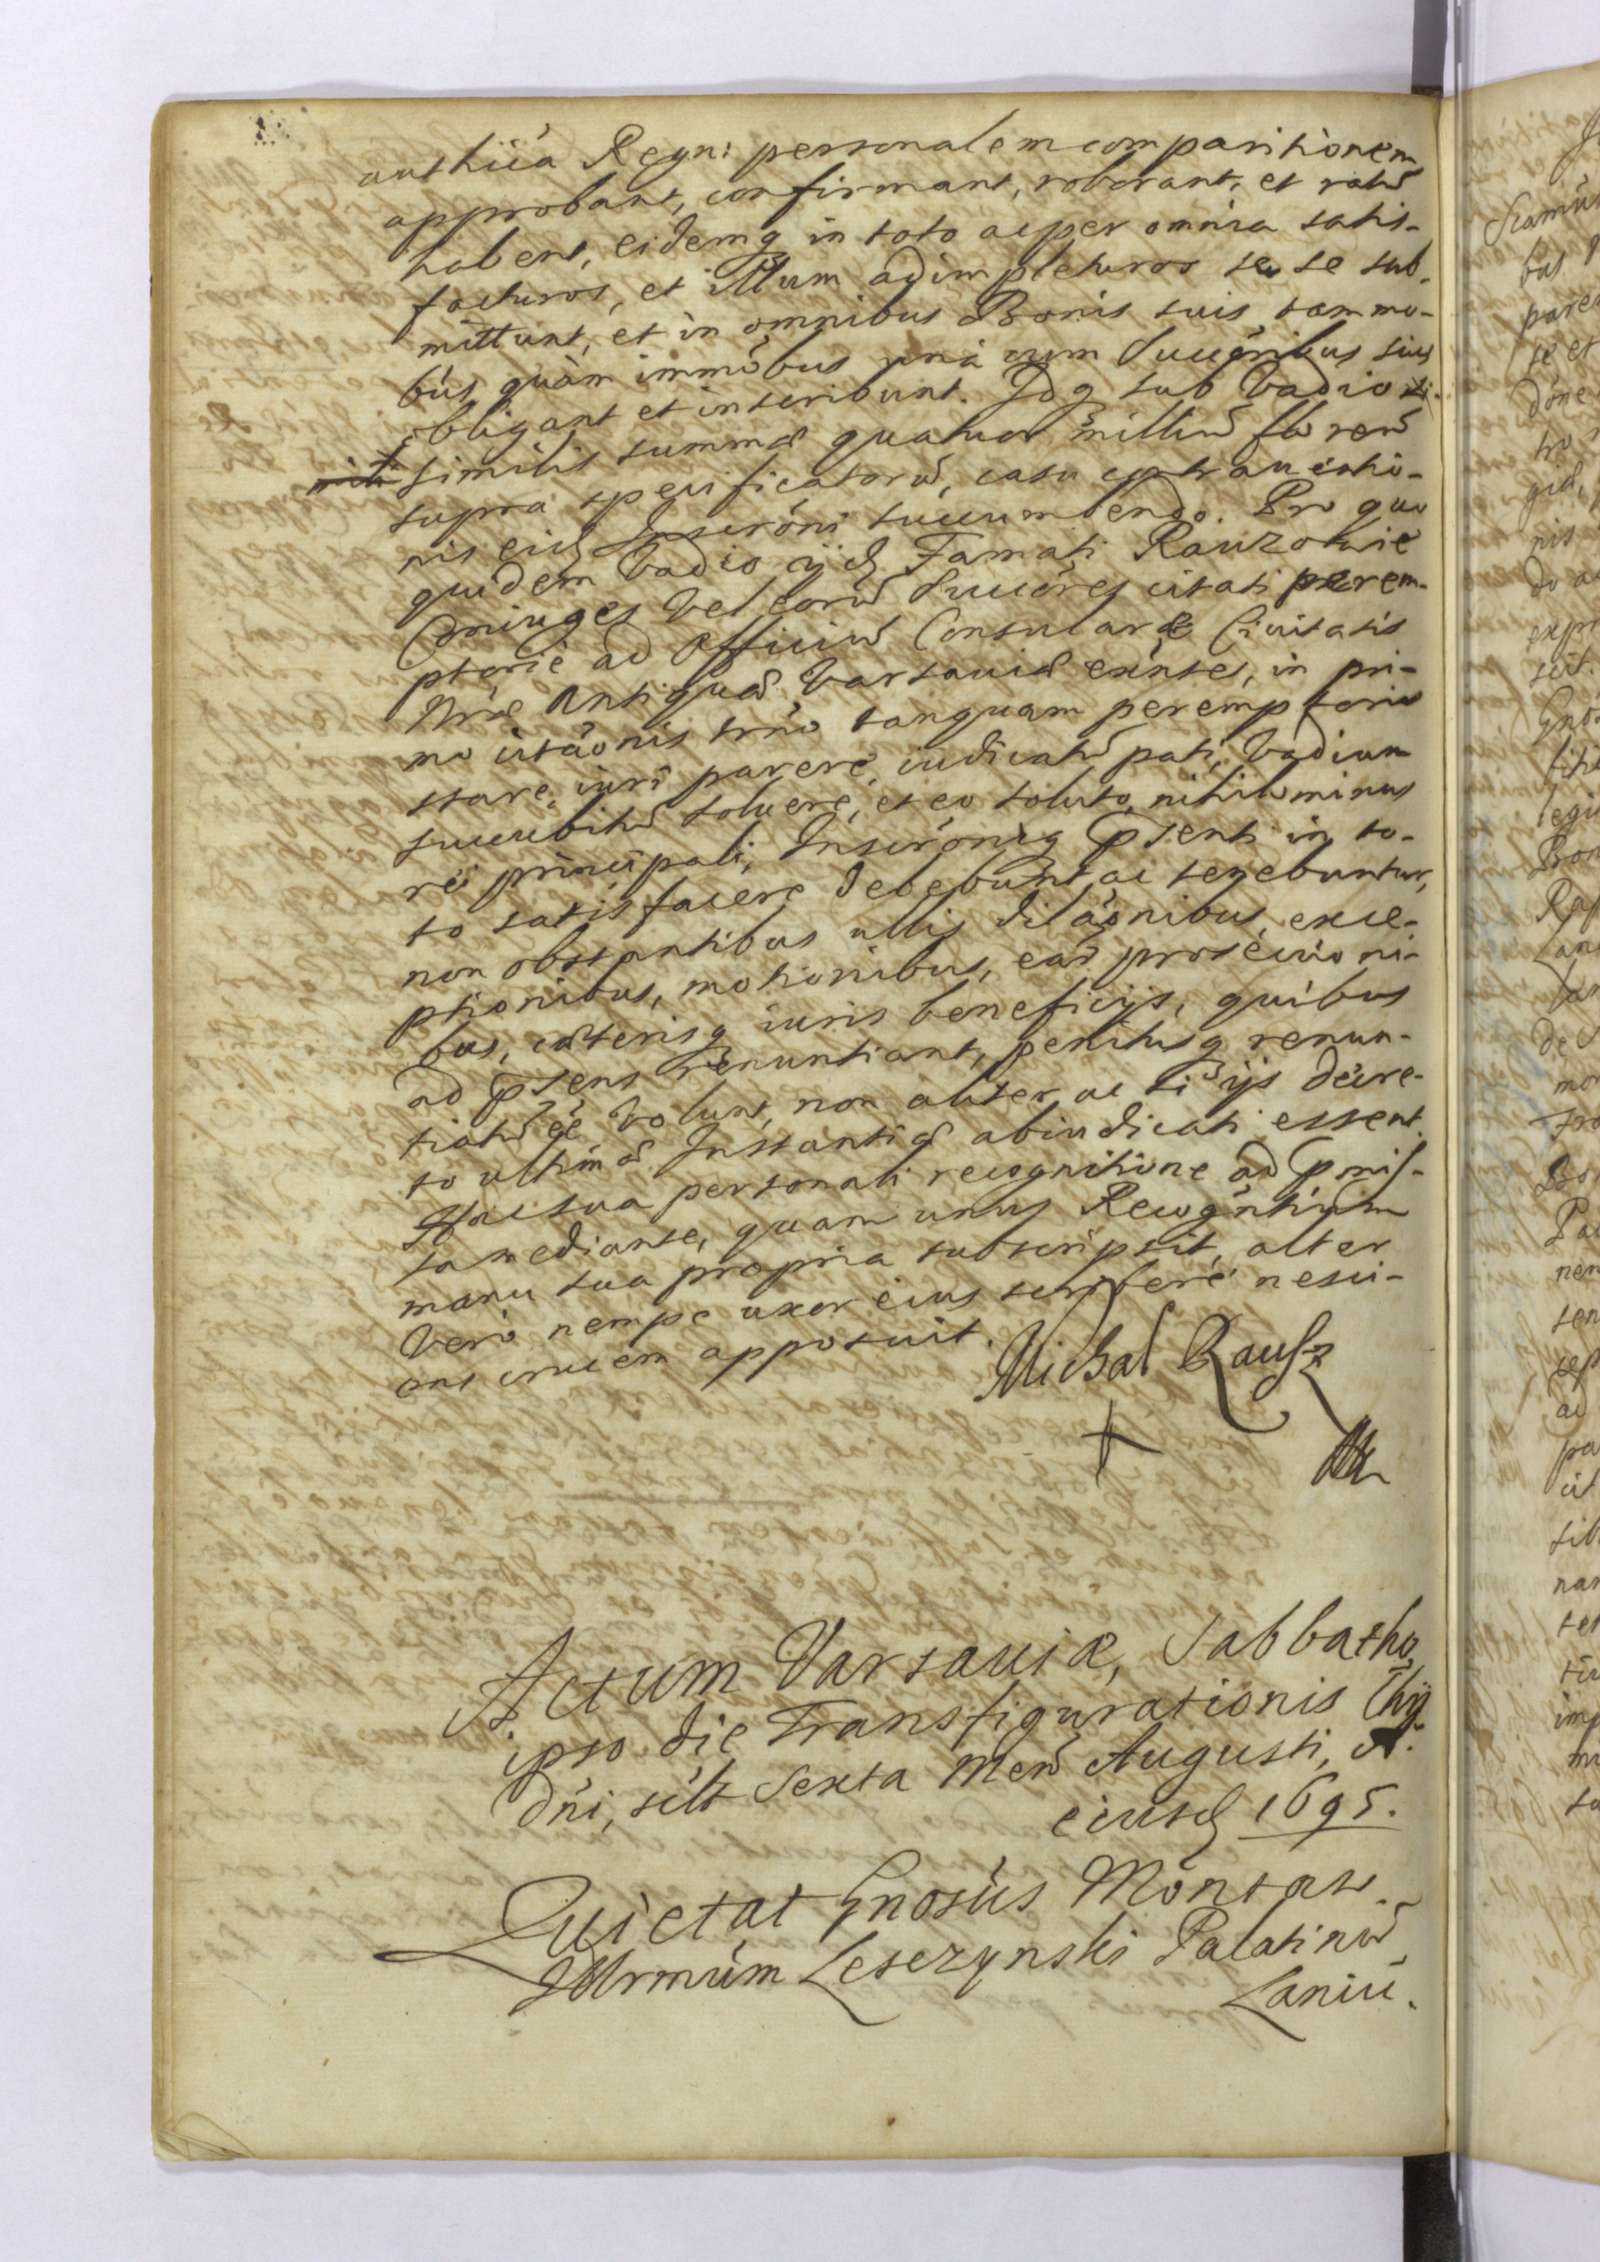 authiĉa Regni personalem comparitionem
approbant, confirmant, roborant, et ratũ
habent, eidemq in toto ac per omnia satis-
facturos, et illum adimpleturos se se sub-
mittunt, et in omnibus Bonis suis tam mo-
bûs quàm immôbus unà cum Succôribus suis
obligant et inscribunt. Idq sub Vadio
similis summæ quatuor milliũ florenũ
supra specificatorũ, casu contrauentio-
nis eid Inscrôni succumbendo. Pro quo
quidem Vadio ijd Famati Rauzowie
Coniuges Vel eorũ Succôres citati perem-
ptoriè ad Officiũ Consulare Ciuitatis
Nræ Antiquæ Varsauiæ exîntes, in pri-
mo citâonis trno tanquam peremptorio
stare, iuri parere, iudicatũ pati, Vadium
succubitũ soluere, et eo soluto, nihilominus
rei principali, Inscrôniq psenti in to-
to satisfacere debebunt, ac tenebuntur,
non obstantibus ullis dilâonibus, exce-
ptionibus, motionibus, eaȓ prosecutioni-
bus, cæterisq iuris beneficijs, quibus
ad psens renuntiant, penitusq renun-
tiatũ ee Volunt, non aliter ac si ijs decre-
to ultimæ Instantiæ abiudicati essent.
Hac sua personali recognitione ad pmis-
sa mediante, quam unus Recogntium
manu sua propria subscripsit, alter
Verò nempe uxor eius scribere nesci-
ens crucem apposuit.
Michal Rausz
+
Actum Varsauiæ, Sabbatho
ipso die Transfigurationis Chri
Dni, silt Sexta Men Augusti, A.
eiusd 1695.
Quietat Gnosus Monsaw.
Illrmum Leszczynski Palatinũ
Lanciĉ.